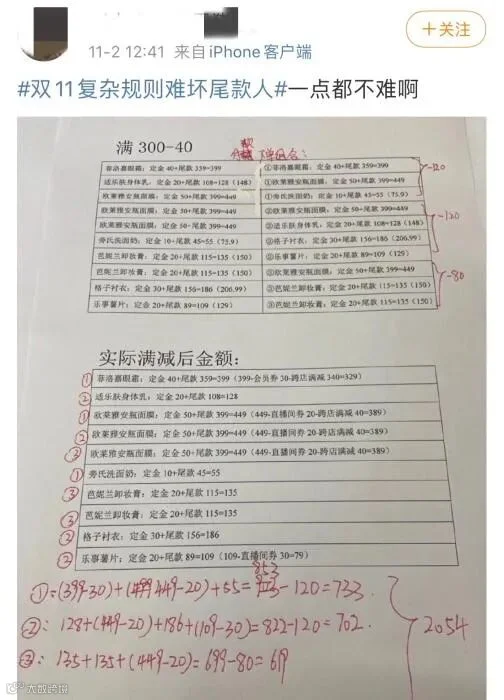 +关注
11-2 12:41 来自iPhone客户端
#双11复杂规则难坏尾款人#一点都不难啊
满 300-40
下单组合：
菲洛嘉眼霜：定金 40+尾款 359=399
①菲洛嘉眼霜：定金 40+尾款 359=399
-120
适乐肤身体乳：定金 20+尾款 108=128（148）
①欧莱雅安瓶面膜：定金 50+尾款 399=449
欧莱雅安瓶面膜：定金 50+尾款 399=449
①旁氏洗面奶：定金 10+尾款 45=55（75.9）
欧莱雅安瓶面膜：定金 50+尾款 399=449
②欧莱雅安瓶面膜：定金 50+尾款 399=449
-120
欧莱雅安瓶面膜：定金 50+尾款 399=449
②适乐肤身体乳：定金 20+尾款 108=128（148）
旁氏洗面奶：定金 10+尾款 45=55（75.9）
②格子衬衣：定金 30+尾款 156=186（206.99）
芭妮兰卸妆膏：定金 20+尾款 115=135（150）
②乐事薯片：定金 20+尾款 89=109（129）
芭妮兰卸妆膏：定金 20+尾款 115=135（150）
③欧莱雅安瓶面膜：定金 50+尾款 399=449
-80
格子衬衣：定金 30+尾款 156=186（206.99）
③芭妮兰卸妆膏：定金 20+尾款 115=135（150）
乐事薯片：定金 20+尾款 89=109（129）
③芭妮兰卸妆膏：定金 20+尾款 115=135（150）
实际满减后金额：
① 菲洛嘉眼霜：定金 40+尾款 359=399（399-会员券 30-跨店满减 340=329）
② 适乐肤身体乳：定金 20+尾款 108=128
① 欧莱雅安瓶面膜：定金 50+尾款 399=449（449-直播间券 20-跨店满减 40=389）
② 欧莱雅安瓶面膜：定金 50+尾款 399=449（449-直播间券 20-跨店满减 40=389）
③ 欧莱雅安瓶面膜：定金 50+尾款 399=449（449-直播间券 20-跨店满减 40=389）
① 旁氏洗面奶：定金 10+尾款 45=55
③ 芭妮兰卸妆膏：定金 20+尾款 115=135
③ 芭妮兰卸妆膏：定金 20+尾款 115=135
② 格子衬衣：定金 30+尾款 156=186
② 乐事薯片：定金 20+尾款 89=109（109-直播间券 30=79）
853
①=(399-30)+(449-20)+55=-120=733
②：128+(449-20)+186+(109-30)=822-120=702
2054
③：135+135+(449-20)=699-80=619